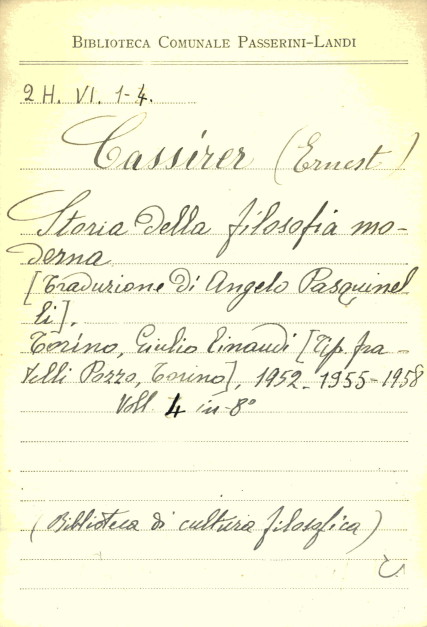 BIBLIOTECA COMUNALE PASSERINI-LANDI
2 H. VI. 1-4.
Cassirer (Ernest)
Storia della filosofia mo-
derna
[Traduzione di Angelo Pasquinel
li].
Torino, Giulio Einaudi [Tip. fra-
telli Pozzo, Torino], 1952-1955-1958
Voll. 4 in-8°
(Biblioteca di cultura filosofica)